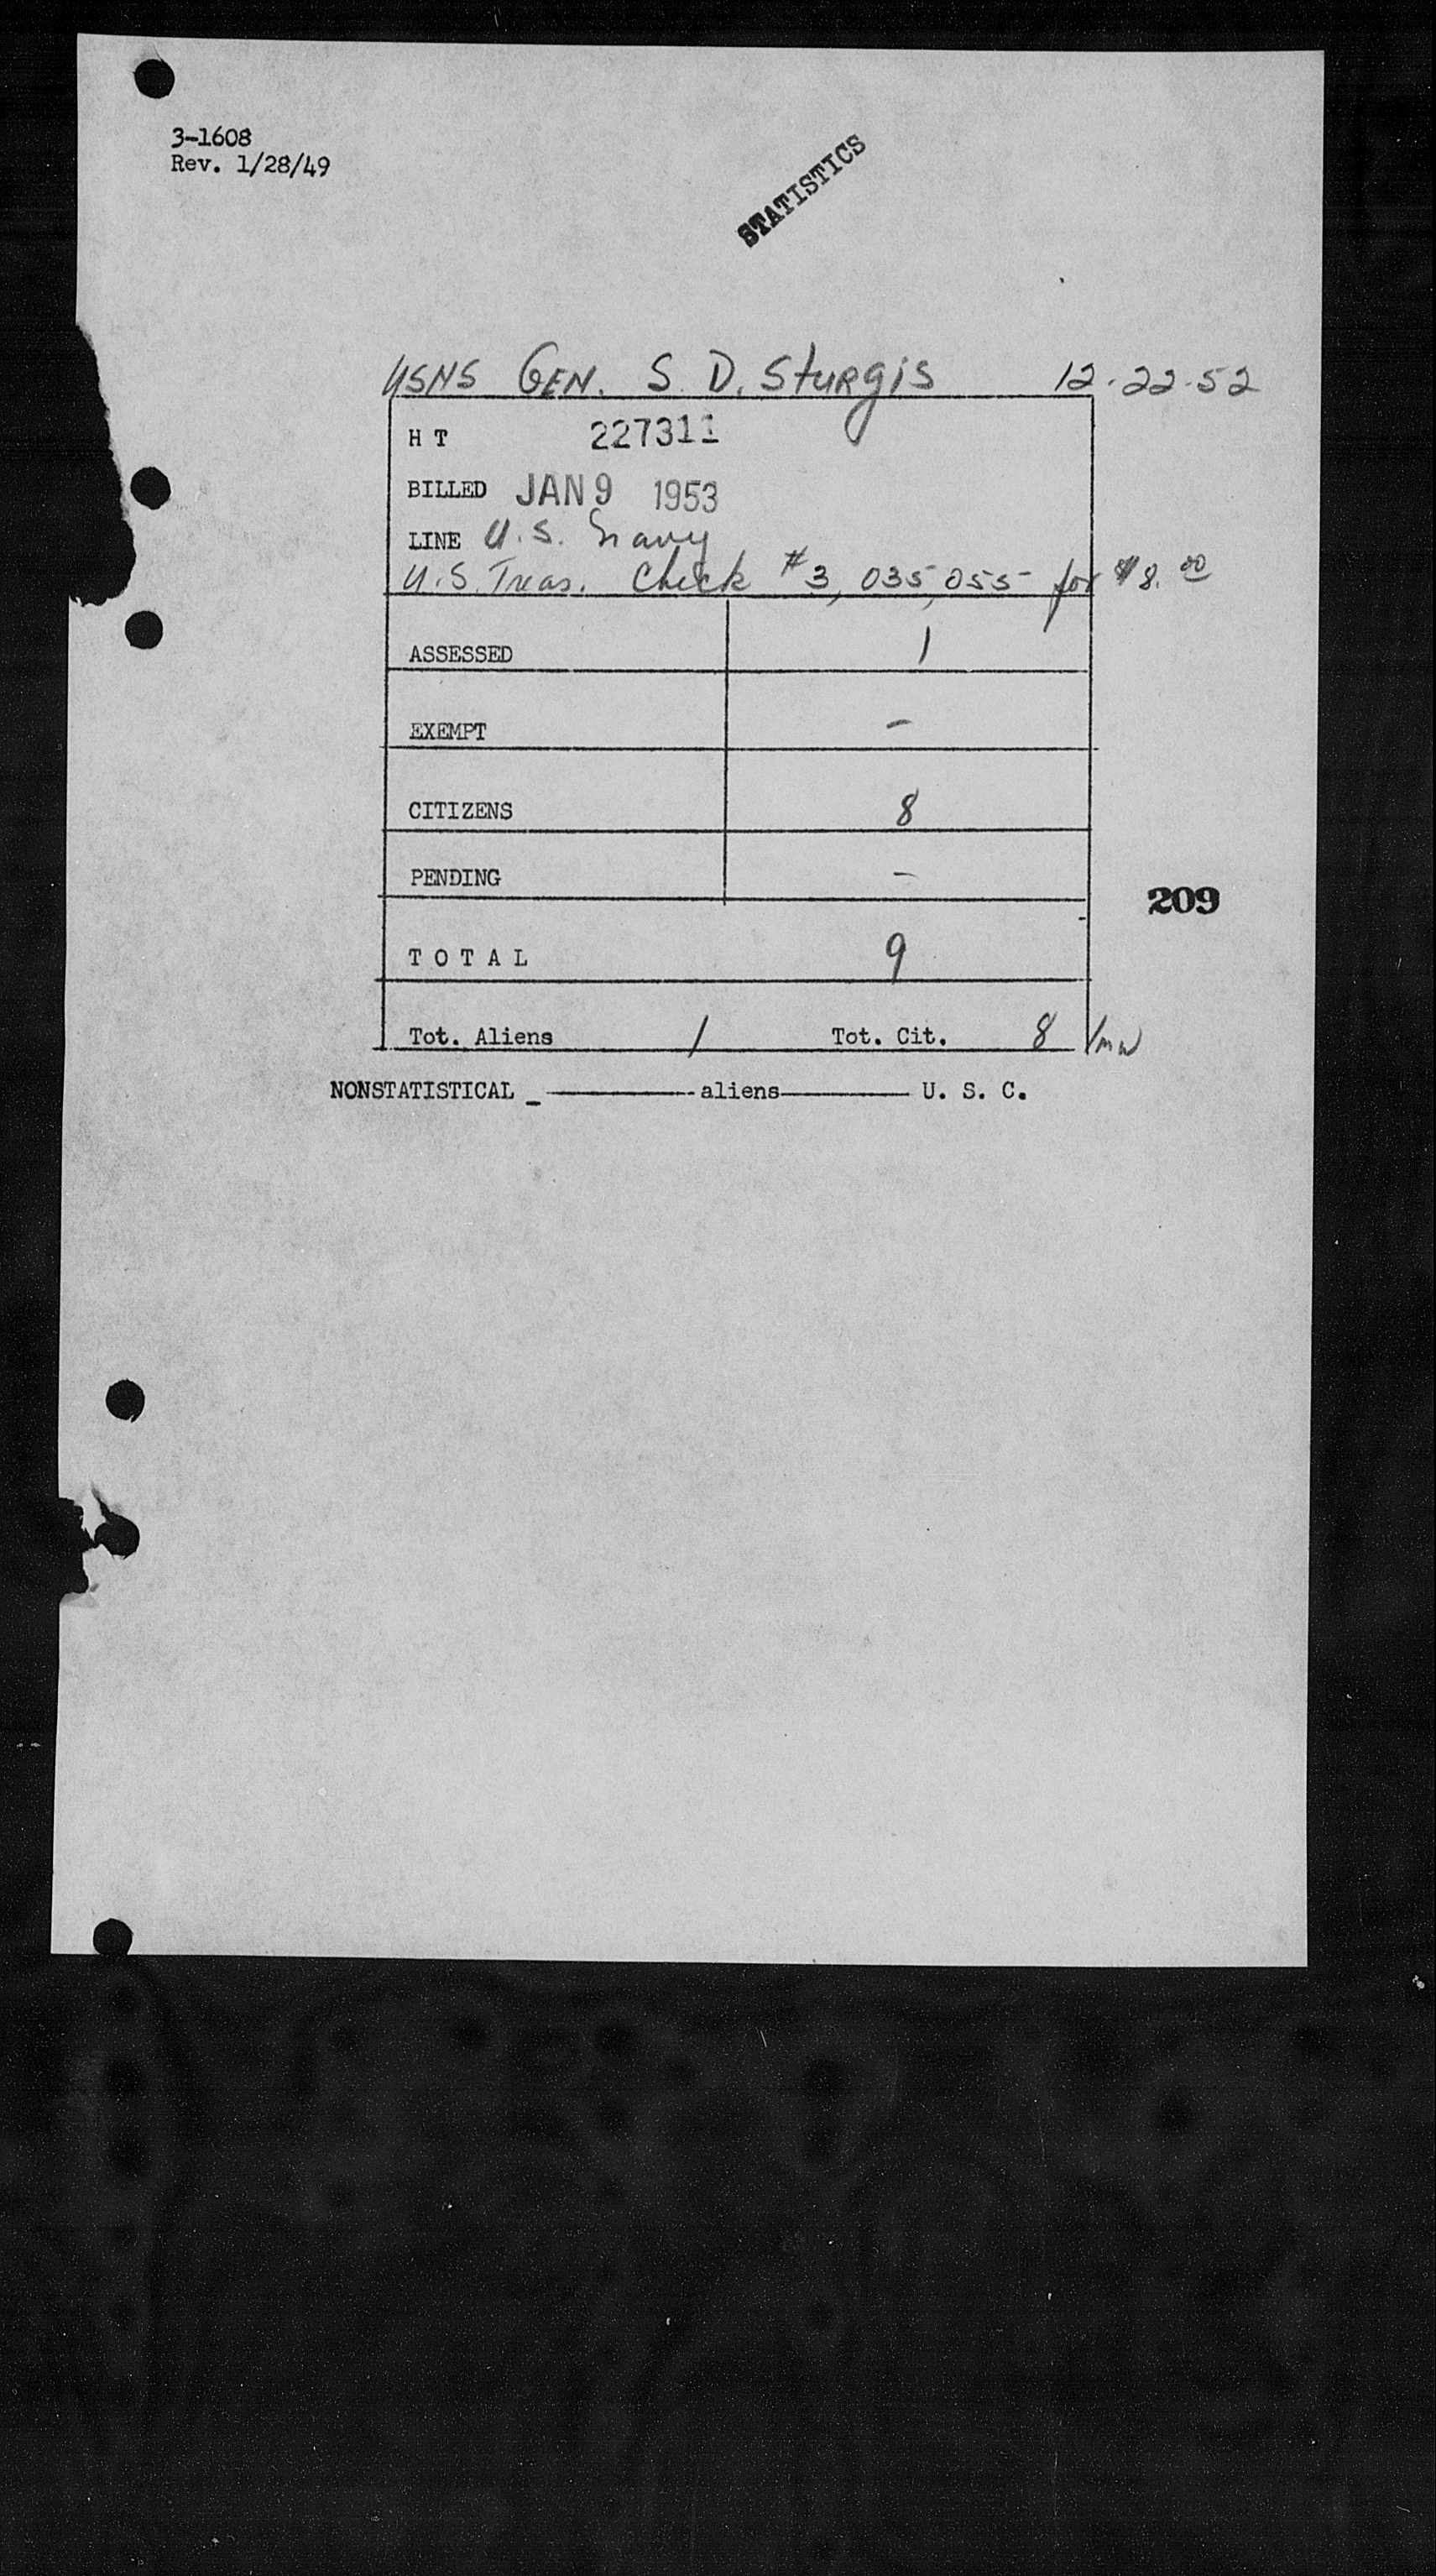 3-1608
Rev. 1/28/49
STATISTICS
USNS GEN. S. D. Sturgis 12-22-52
H T 227311
BILLED JAN 9 1953
LINE U.S. Navy
U.S. Treas. Check #3,035,055 for $8.00
ASSESSED 1
EXEMPT -
CITIZENS 8
PENDING -
209
T O T A L 9
Tot. Aliens 1 Tot. Cit. 8 /mw
NONSTATISTICAL _ ———— aliens ———— U. S. C.